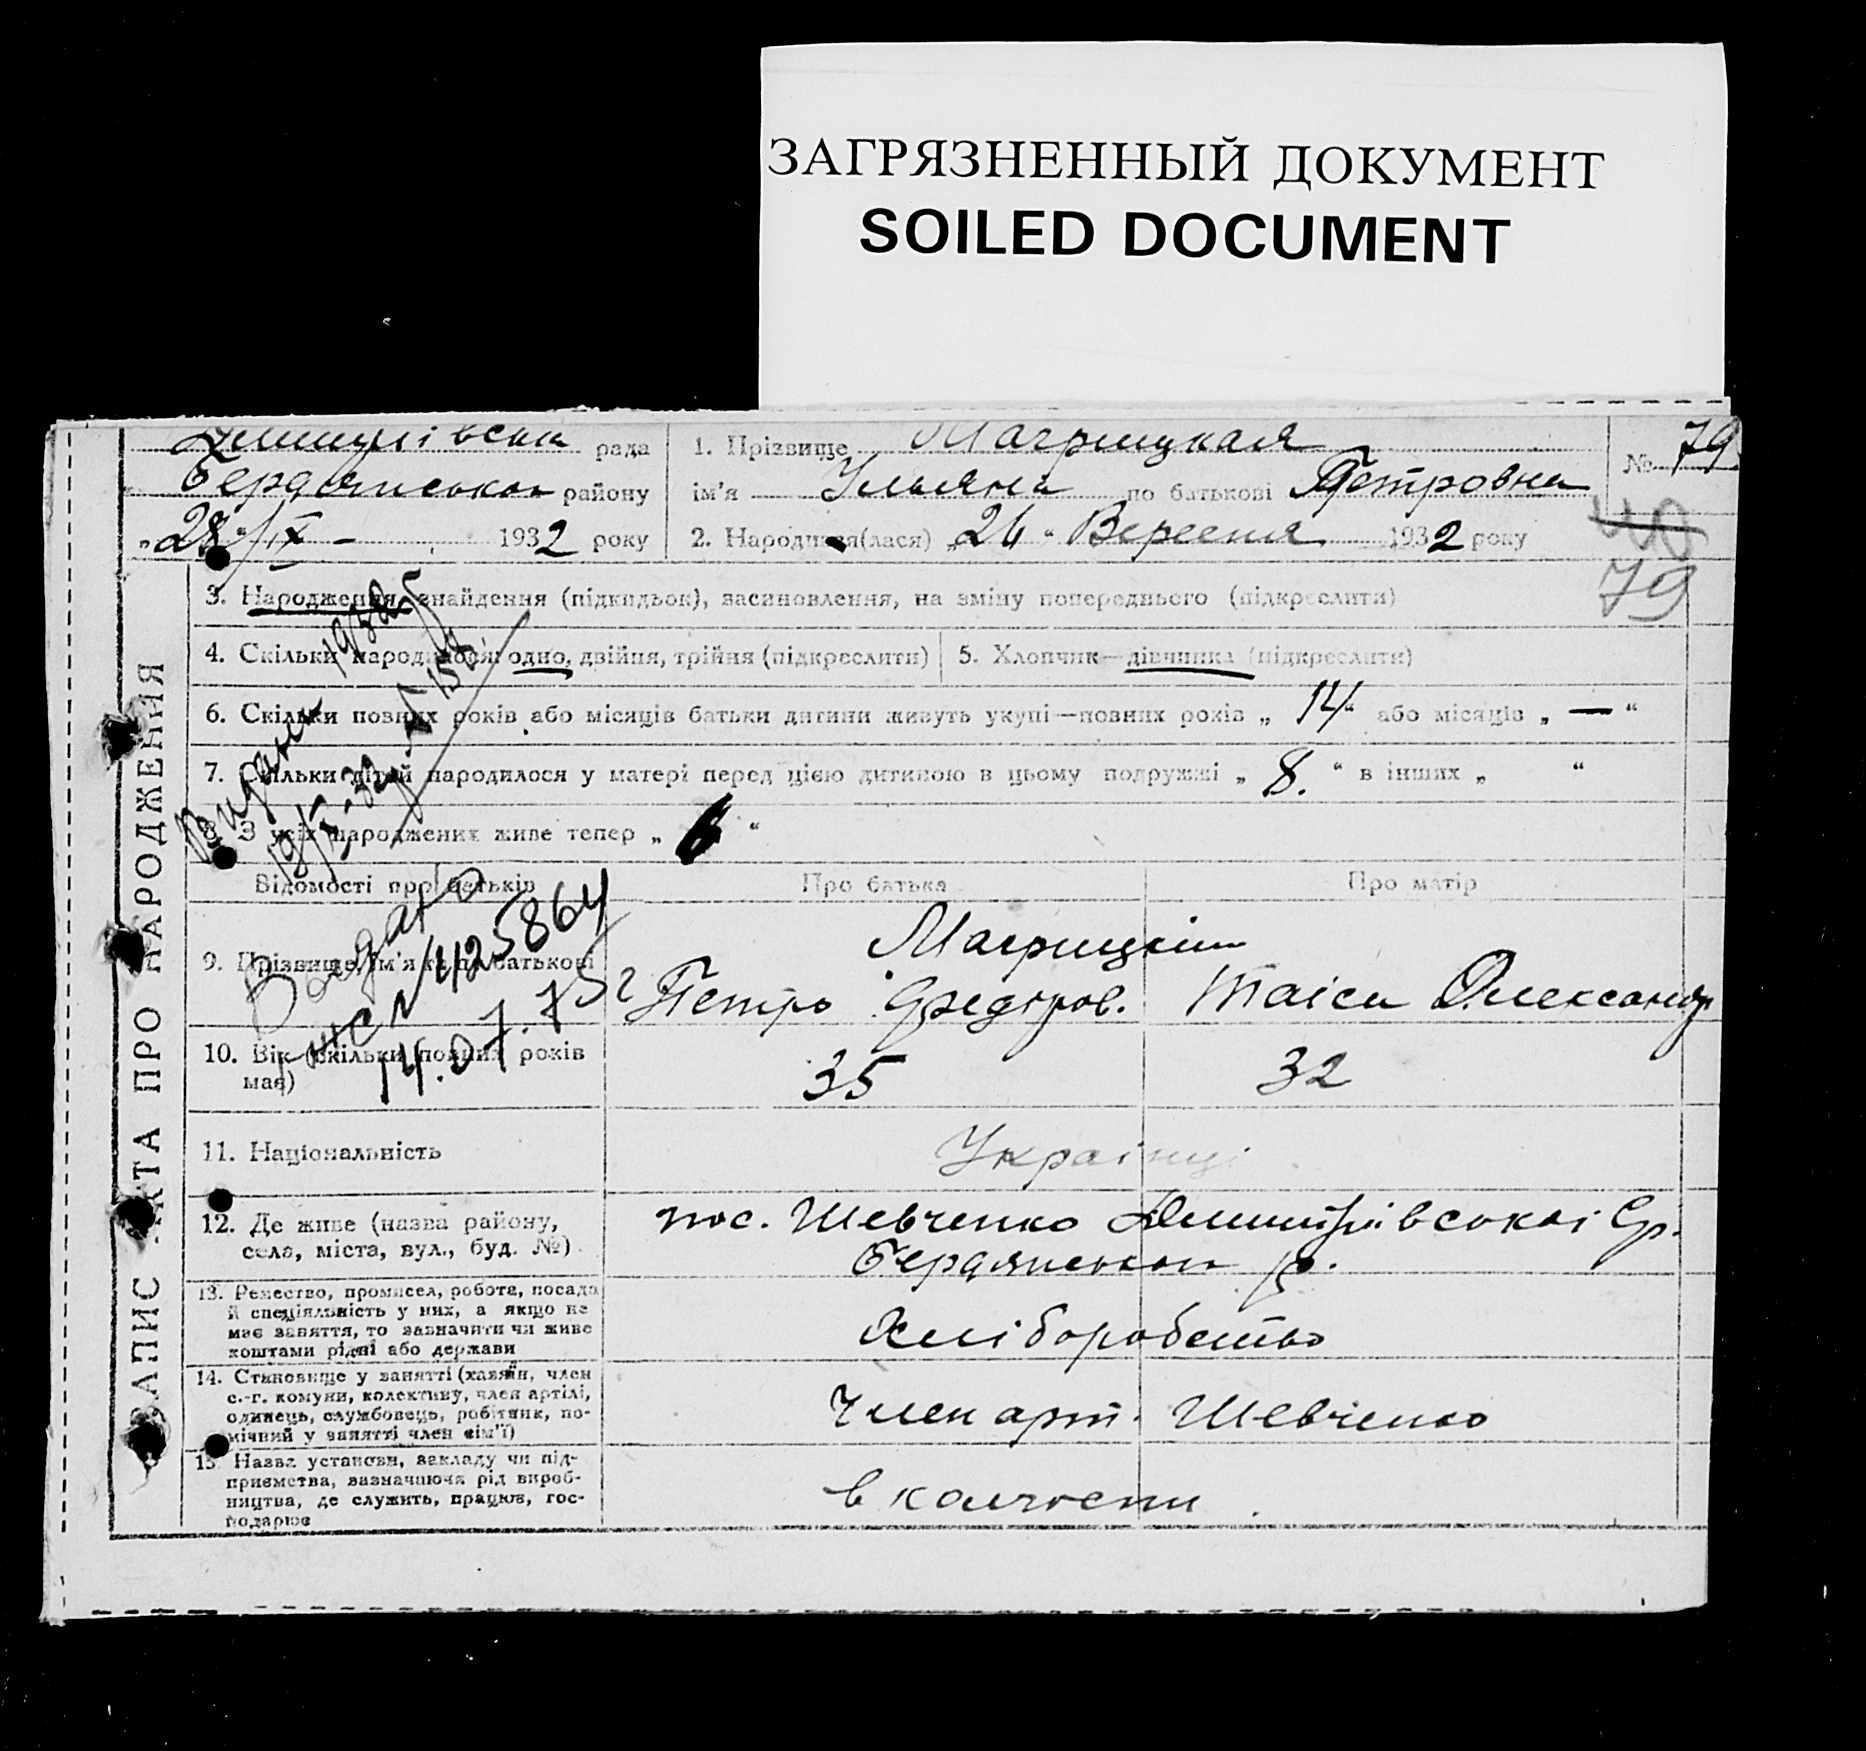 ЗАГРЯЗНЕННЫЙ ДОКУМЕНТ
SOILED DOCUMENT
рада
Бердянського району
„28“/IX – 1932 року
1. Прізвище Магрицкая
ім'я Ульяна по батькові Петровна
2. Народився(лася) „26“ Вересня 1932 року
№ 79
79
ЗАПИС АКТА ПРО НАРОДЖЕННЯ
3. Народження, знайдення (підкидьок), засиновлення, на зміну попереднього (підкреслити)
4. Скільки народилося: одно, двійня, трійня (підкреслити)
5. Хлопчик—дівчинка (підкреслити)
6. Скільки повних років або місяців батьки дитини живуть укупі—повних років „14“ або місяців „—“
7. Скільки дітей народилося у матері перед цією дитиною в цьому подружжі „8.“ в інших „ “
8. З усіх народжених живе тепер „6“
Відомості про батьків
Про батька
Про матір
9. Прізвище, ім'я та по батькові
Магрицкіи
Петро Федоров. Таіса Олександр
10. Вік (скільки повних років має)
35
32
11. Національність
Українці
12. Де живе (назва району,
села, міста, вул., буд. №)
пос. Шевченко Дмитрівськоі Ср.
Бердянськои р.
13. Ремество, промисел, робота, посада
й спеціяльність у них, а якщо не
має заняття, то зазначити чи живе
коштами рідні або держави
Хліборобство
14. Становище у занятті (хазяїн, член
с.-г. комуни, колективу, член артілі,
одинець, службовець, робітник, по-
мічний у занятті член сім'ї)
Член арт. Шевченко
15. Назва установи, закладу чи під-
приємства, зазначаючи рід вироб-
ництва, де служить, працює, гос-
подарює
в колгоспи
Выдано
425864
14.07.75г